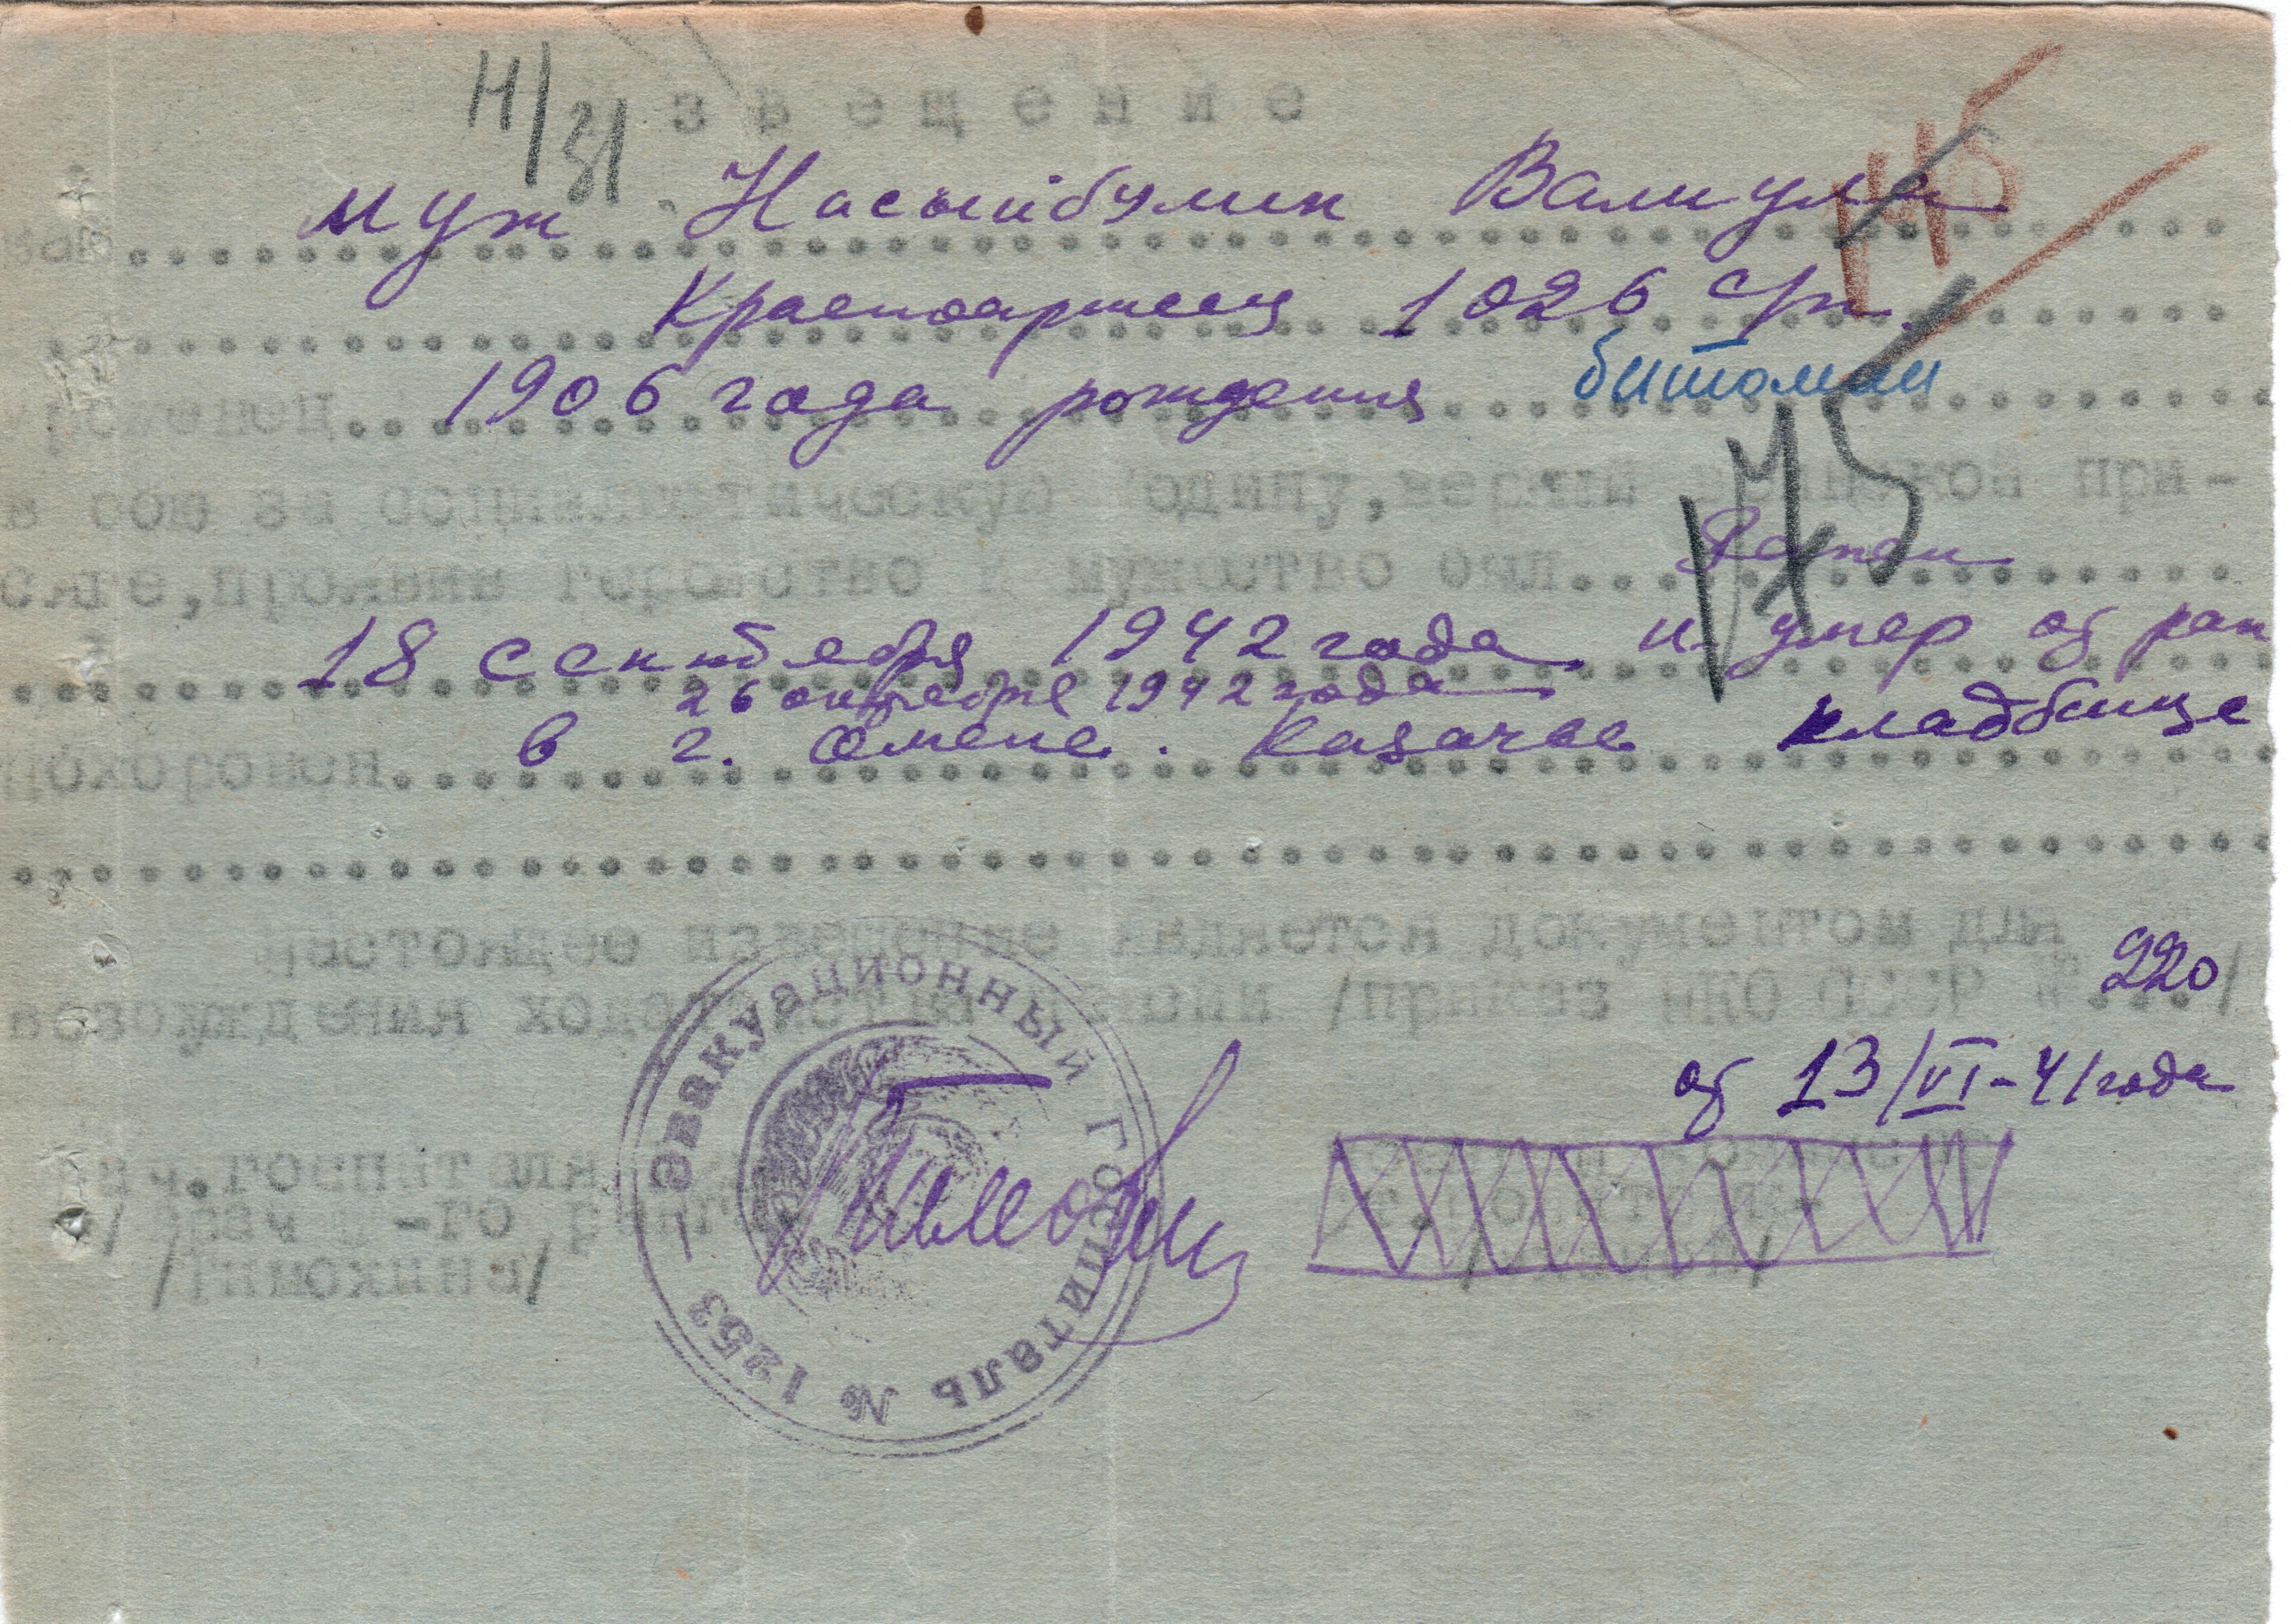 Н/31
звещение
Ваш муж Насыйбулин Валиула
Красноармеец 1026 сп.
1906 года рождения
уроженец
в бою за социалистическую Родину, верный воинской при-
сяге, проявив геройство и мужество был ранен
18 сентября 1942 года и умер от ран
26 октября 1942 года
похоронен в г. Омске. Казачье кладбище
Настоящее извещение является документом для
возбуждения ходатайства пенсии /приказ НКО СССР № 220/
от 13/VI-41 года
Нач. госпиталя
/Тимохина/
Эвакуационный госпиталь № 1253
175